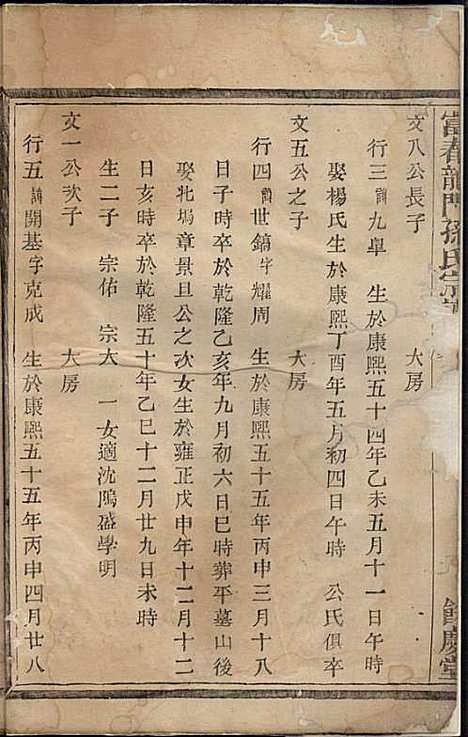 富春龍門孫氏宗譜
餘慶堂
文八公長子　大房
行三諱九臯　生於康熙五十四年乙未五月十一日午時
娶楊氏生於康熙丁酉年五月初四日午時　公氏俱卒
文五公之子　大房
行四諱世鎬字耀周　生於康熙五十五年丙申三月十八
日子時卒於乾隆乙亥年九月初六日巳時葬平墓山後
娶北塢章景旦公之次女生於雍正戊申年十二月十二
日亥時卒於乾隆五十年乙巳十二月廿九日未時
生二子　宗佑　宗大　一女適沈鴫盛學明
文一公次子　大房
行五諱開基字克成　生於康熙五十五年丙申四月廿八